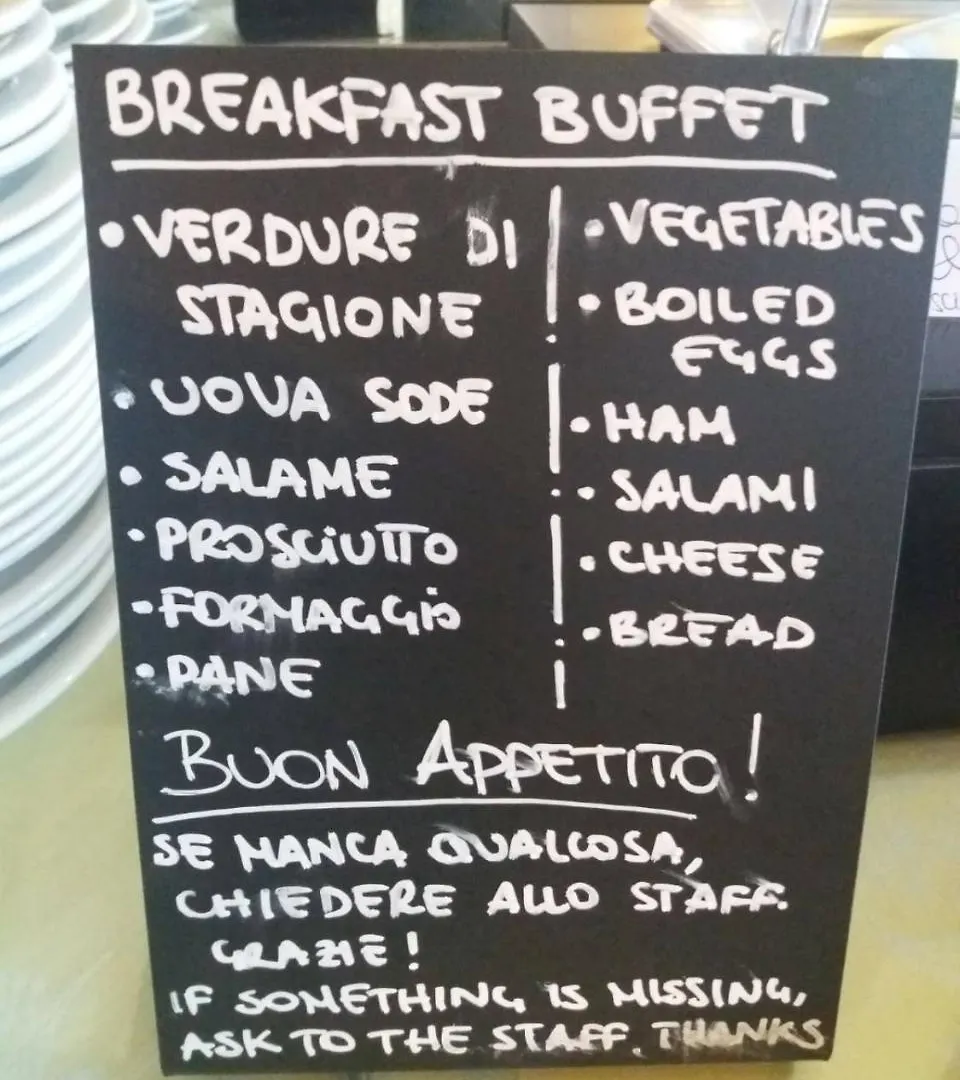 BREAKFAST BUFFET
• VERDURE DI
STAGIONE
• UOVA SODE
• SALAME
• PROSCIUTTO
• FORMAGGIO
• PANE
• VEGETABLES
• BOILED
EGGS
• HAM
• SALAMI
• CHEESE
• BREAD
BUON APPETITO!
SE MANCA QUALCOSA,
CHIEDERE ALLO STAFF.
GRAZIE!
IF SOMETHING IS MISSING,
ASK TO THE STAFF. THANKS